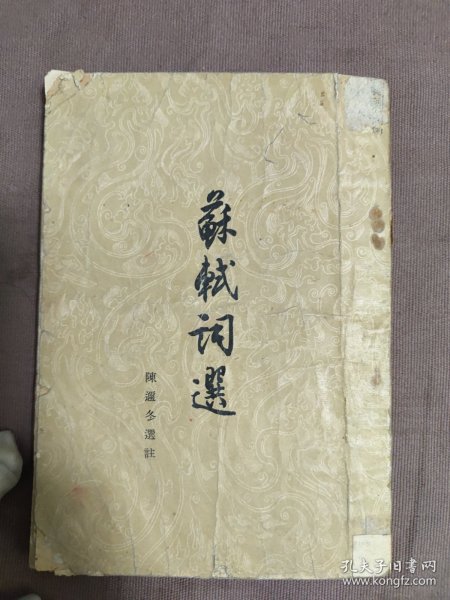 蘇軾詞選
陳邇冬選註
孔夫子旧书网
www.kongfz.com